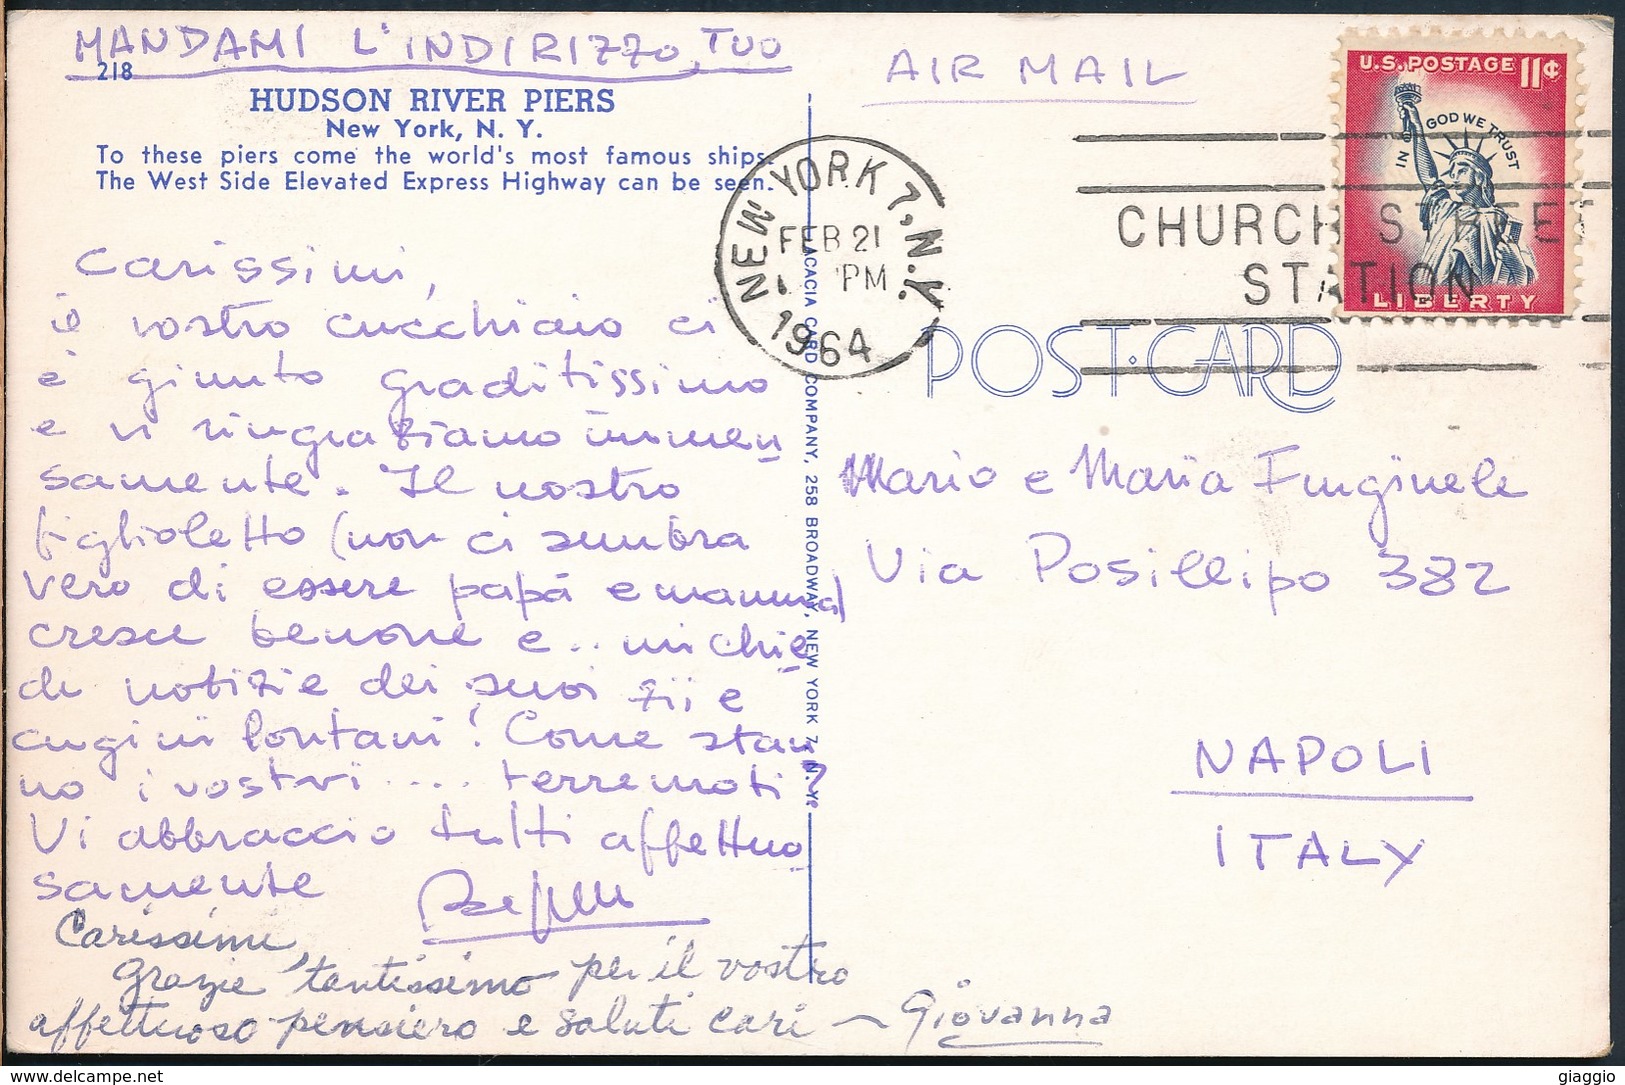 MANDAMI L'INDIRIZZO TUO
218
HUDSON RIVER PIERS
New York, N. Y.
To these piers come the world's most famous ships.
The West Side Elevated Express Highway can be seen.
Carissimi,
il vostro cucchiaio ci
è giunto graditissimo
e vi ringraziamo immen
samente. Il nostro
figlioletto (non ci sembra
vero di essere papà e mamma)
cresce benone e .. mi chie
de notizie dei suoi zii e
cugini lontani! Come stan
no i vostri .... terremoti?
Vi abbraccio tutti affettuo
samente
Carissimi
grazie tantissimo per il vostro
affettuoso pensiero e saluti cari — Giovanna
ACACIA CARD COMPANY, 258 BROADWAY, NEW YORK 7, N.Y.
AIR MAIL
U.S. POSTAGE 11¢
IN GOD WE TRUST
LIBERTY
NEW YORK 7, N.Y.
FEB 21
PM
1964
CHURCH STREET
STATION
POST CARD
Mario e Maria Funginele
Via Posillipo 382
NAPOLI
ITALY
giaggio